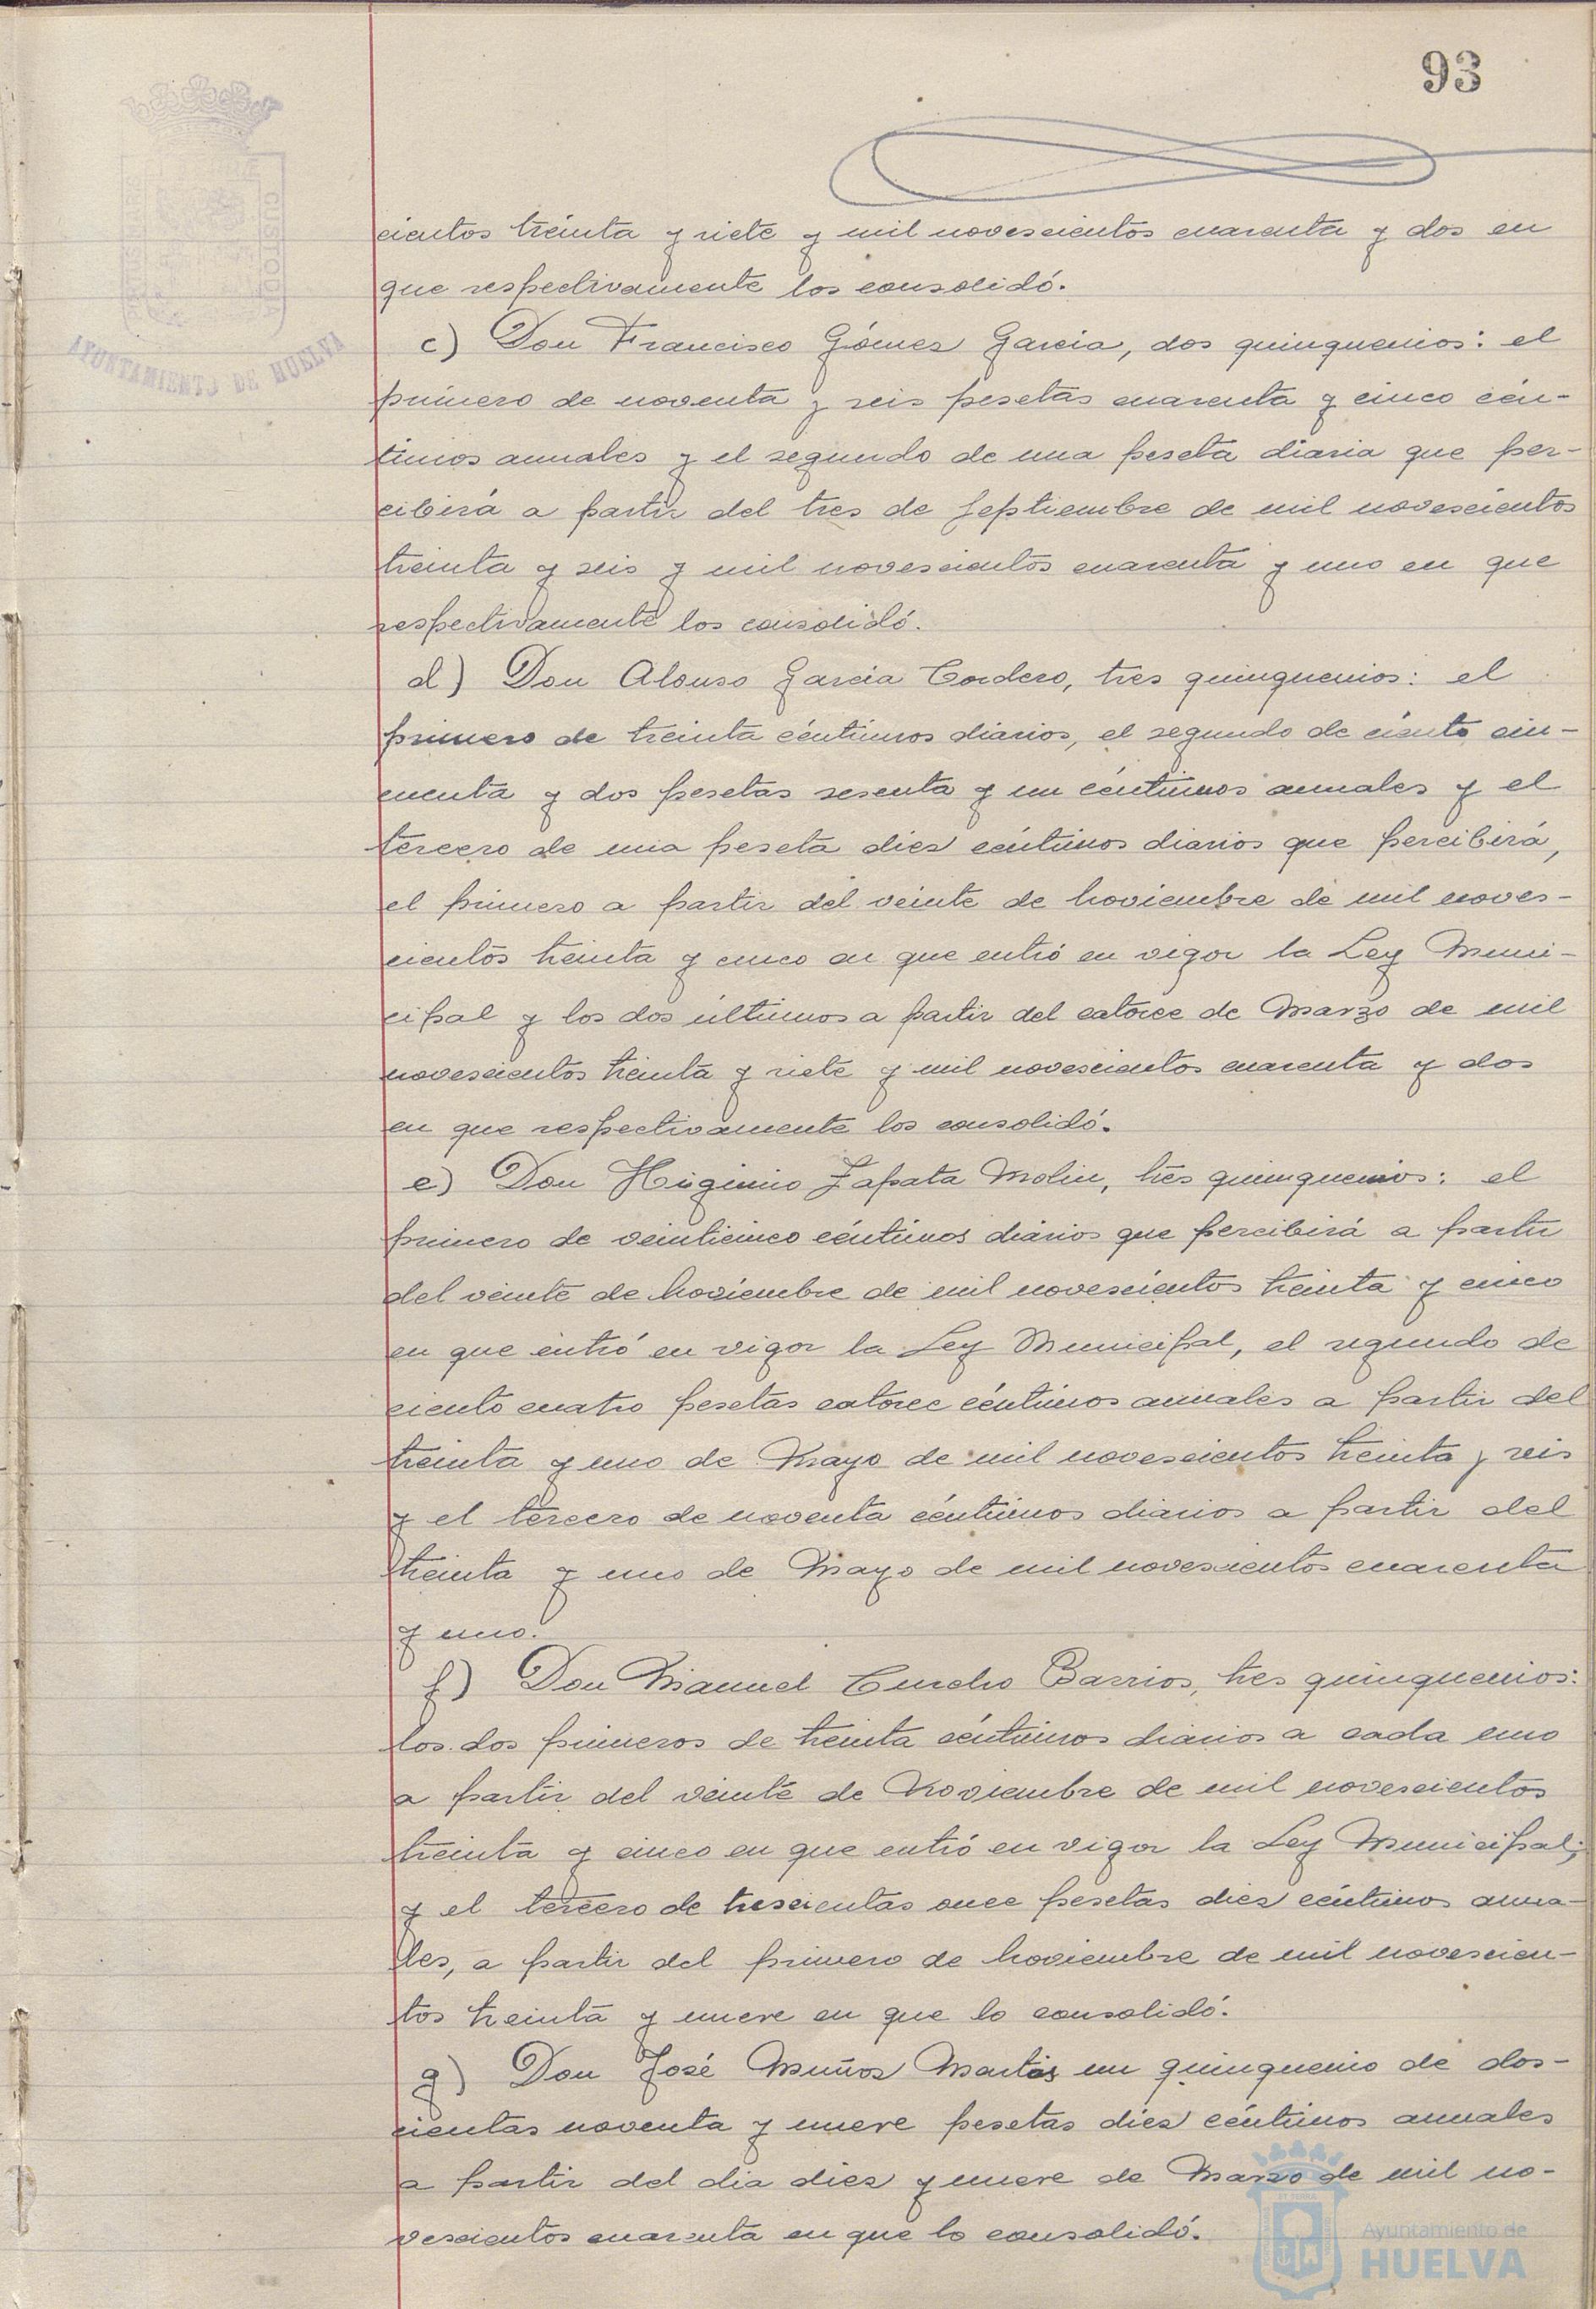 93
AYUNTAMIENTO DE HUELVA
CUSTODIA
cientos treinta y siete y mil novescientos cuarenta y dos en
que respectivamente los consolidó.
c) Don Francisco Gómez Garcia, dos quinquenios: el
primero de noventa y seis pesetas cuarenta y cinco cén-
timos anuales y el segundo de una peseta diaria que per-
cibirá a partir del tres de Septiembre de mil novescientos
treinta y seis y mil novescientos cuarenta y uno en que
respectivamente los consolidó.
d) Don Alonso Garcia Cordero, tres quinquenios: el
primero de treinta céntimos diarios, el segundo de ciento cin-
cuenta y dos pesetas sesenta y un céntimos anuales y el
tercero de una peseta diez céntimos diarios que percibirá,
el primero a partir del veinte de Noviembre de mil noves-
cientos treinta y cinco en que entró en vigor la Ley Muni-
cipal y los dos últimos a partir del catorce de Marzo de mil
novescientos treinta y siete y mil novescientos cuarenta y dos
en que respectivamente los consolidó.
e) Don Higinio Zapata Molin, tres quinquenios: el
primero de veinticinco céntimos diarios que percibirá a partir
del veinte de Noviembre de mil novescientos treinta y cinco
en que entró en vigor la Ley Municipal, el segundo de
ciento cuatro pesetas catorce céntimos anuales a partir del
treinta y uno de Mayo de mil novescientos treinta y seis
y el tercero de noventa céntimos diarios a partir del
treinta y uno de Mayo de mil novescientos cuarenta
y uno.
f) Don Manuel Barrios, tres quinquenios:
los dos primeros de treinta céntimos diarios a cada uno
a partir del veinte de Noviembre de mil novescientos
treinta y cinco en que entró en vigor la Ley Municipal;
y el tercero de trescientas once pesetas diez céntimos anua-
les, a partir del primero de Noviembre de mil novescien-
tos treinta y nueve en que lo consolidó.
g) Don José Muñoz un quinquenio de dos-
cientas noventa y nueve pesetas diez céntimos anuales
a partir del dia diez y nueve de Marzo de mil no-
vescientos cuarenta en que lo consolidó.
Ayuntamiento de
HUELVA